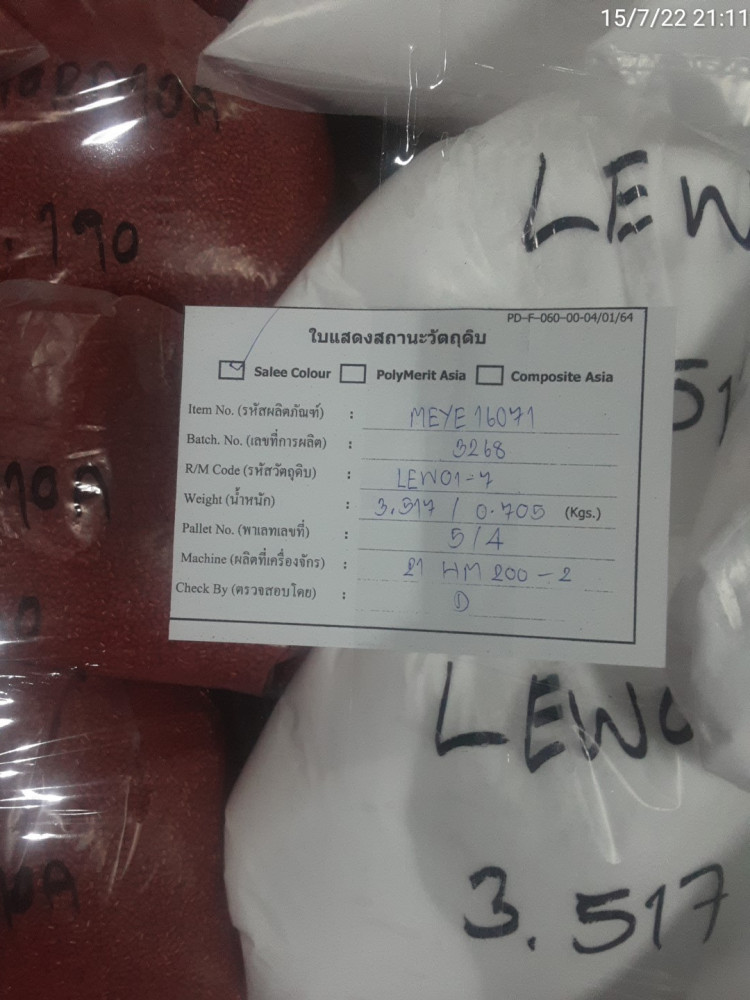 15/7/22 21:11
.190
LEW
PD-F-060-00-04/01/64
ใบแสดงสถานะวัตถุดิบ
Salee Colour PolyMerit Asia Composite Asia
Item No. (รหัสผลิตภัณฑ์) : MEYE 16071
Batch. No. (เลขที่การผลิต) : 3268
R/M Code (รหัสวัตถุดิบ) : LEW01-7
Weight (น้ำหนัก) : 3.517 / 0.705 (Kgs.)
Pallet No. (พาเลทเลขที่) : 5/4
Machine (ผลิตที่เครื่องจักร) : 21 HM 200-2
Check By (ตรวจสอบโดย) :
51
10A
LEW0
3.517